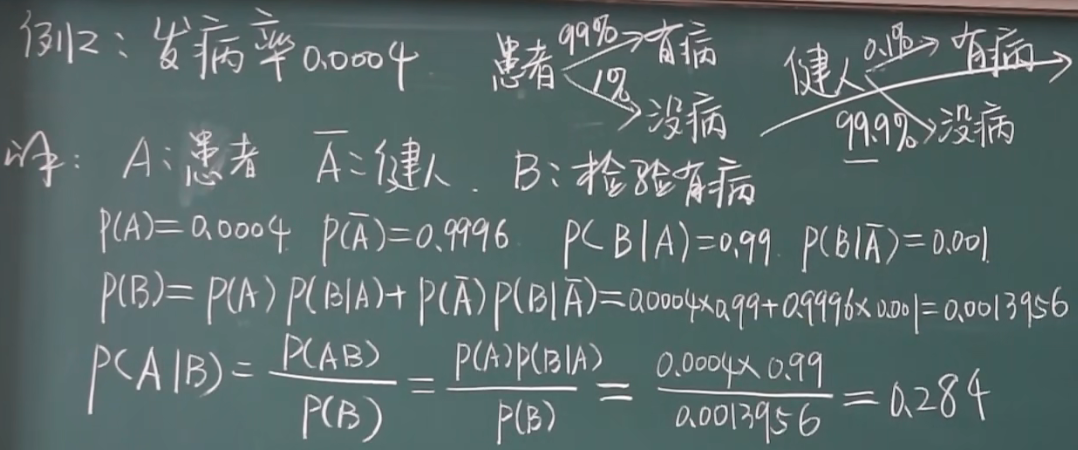 例2：发病率0.0004 患者 99%→有病 1%→没病 健人 0.1%→有病 99.9%→没病
解：A：患者 Ā：健人. B：检验有病
P(A)=0.0004 P(Ā)=0.9996 P(B|A)=0.99 P(B|Ā)=0.001
P(B)=P(A)P(B|A)+P(Ā)P(B|Ā)=0.0004×0.99+0.9996×0.001=0.0013956
P(A|B)=P(AB)/P(B)=P(A)P(B|A)/P(B)=0.0004×0.99/0.0013956=0.284